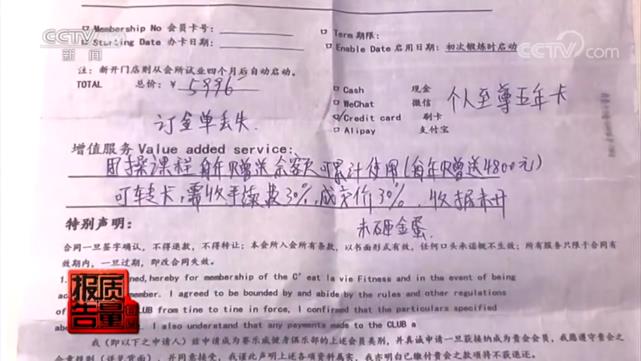 CCTV
新闻
CCTV.com
Membership No 会员卡号:
Starting Date 办卡日期:
Term 期限:
Enable Date 启用日期: 初次锻炼时启动
注:新开门店则从会所试业四个月后自动启动。
TOTAL 总价:¥5996
Cash 现金
WeChat 微信
Credit card 刷卡
Alipay 支付宝
个人至尊五年卡
订金单丢失.
增值服务 Value added service:
团操课程 每年赠送 余额可累计使用(每年赠送4800元)
可转卡,需收手续费30%,成交价30%. 收据未开
未砸金蛋.
特别声明:
合同一旦签字确认,不得退款,不得转让;本会所入会所有条款,以书面形式有效,任何口头承诺概不生效;所有服务只限于合同有
效期内,一旦过期,即改合同失效。
hereby for membership of the C' eat la vie Fitness and in the event of being
member. I agreed to be bounded by and abide by the rules and other regulations
of CLUB from time to tine in force, I confirmed that the particulars specified
I also understand that any payments made to the CLUB a
我(即以下之申请人)兹申请成为赛乐威健身俱乐部的上述会员类别,并真诚申请一旦获接纳成为贵会会员,我愿遵守贵会之
并同意接受,我谨此声明上述各项资料真实,我亦明白已缴付贵会之款项将不获退还,
质量
报告